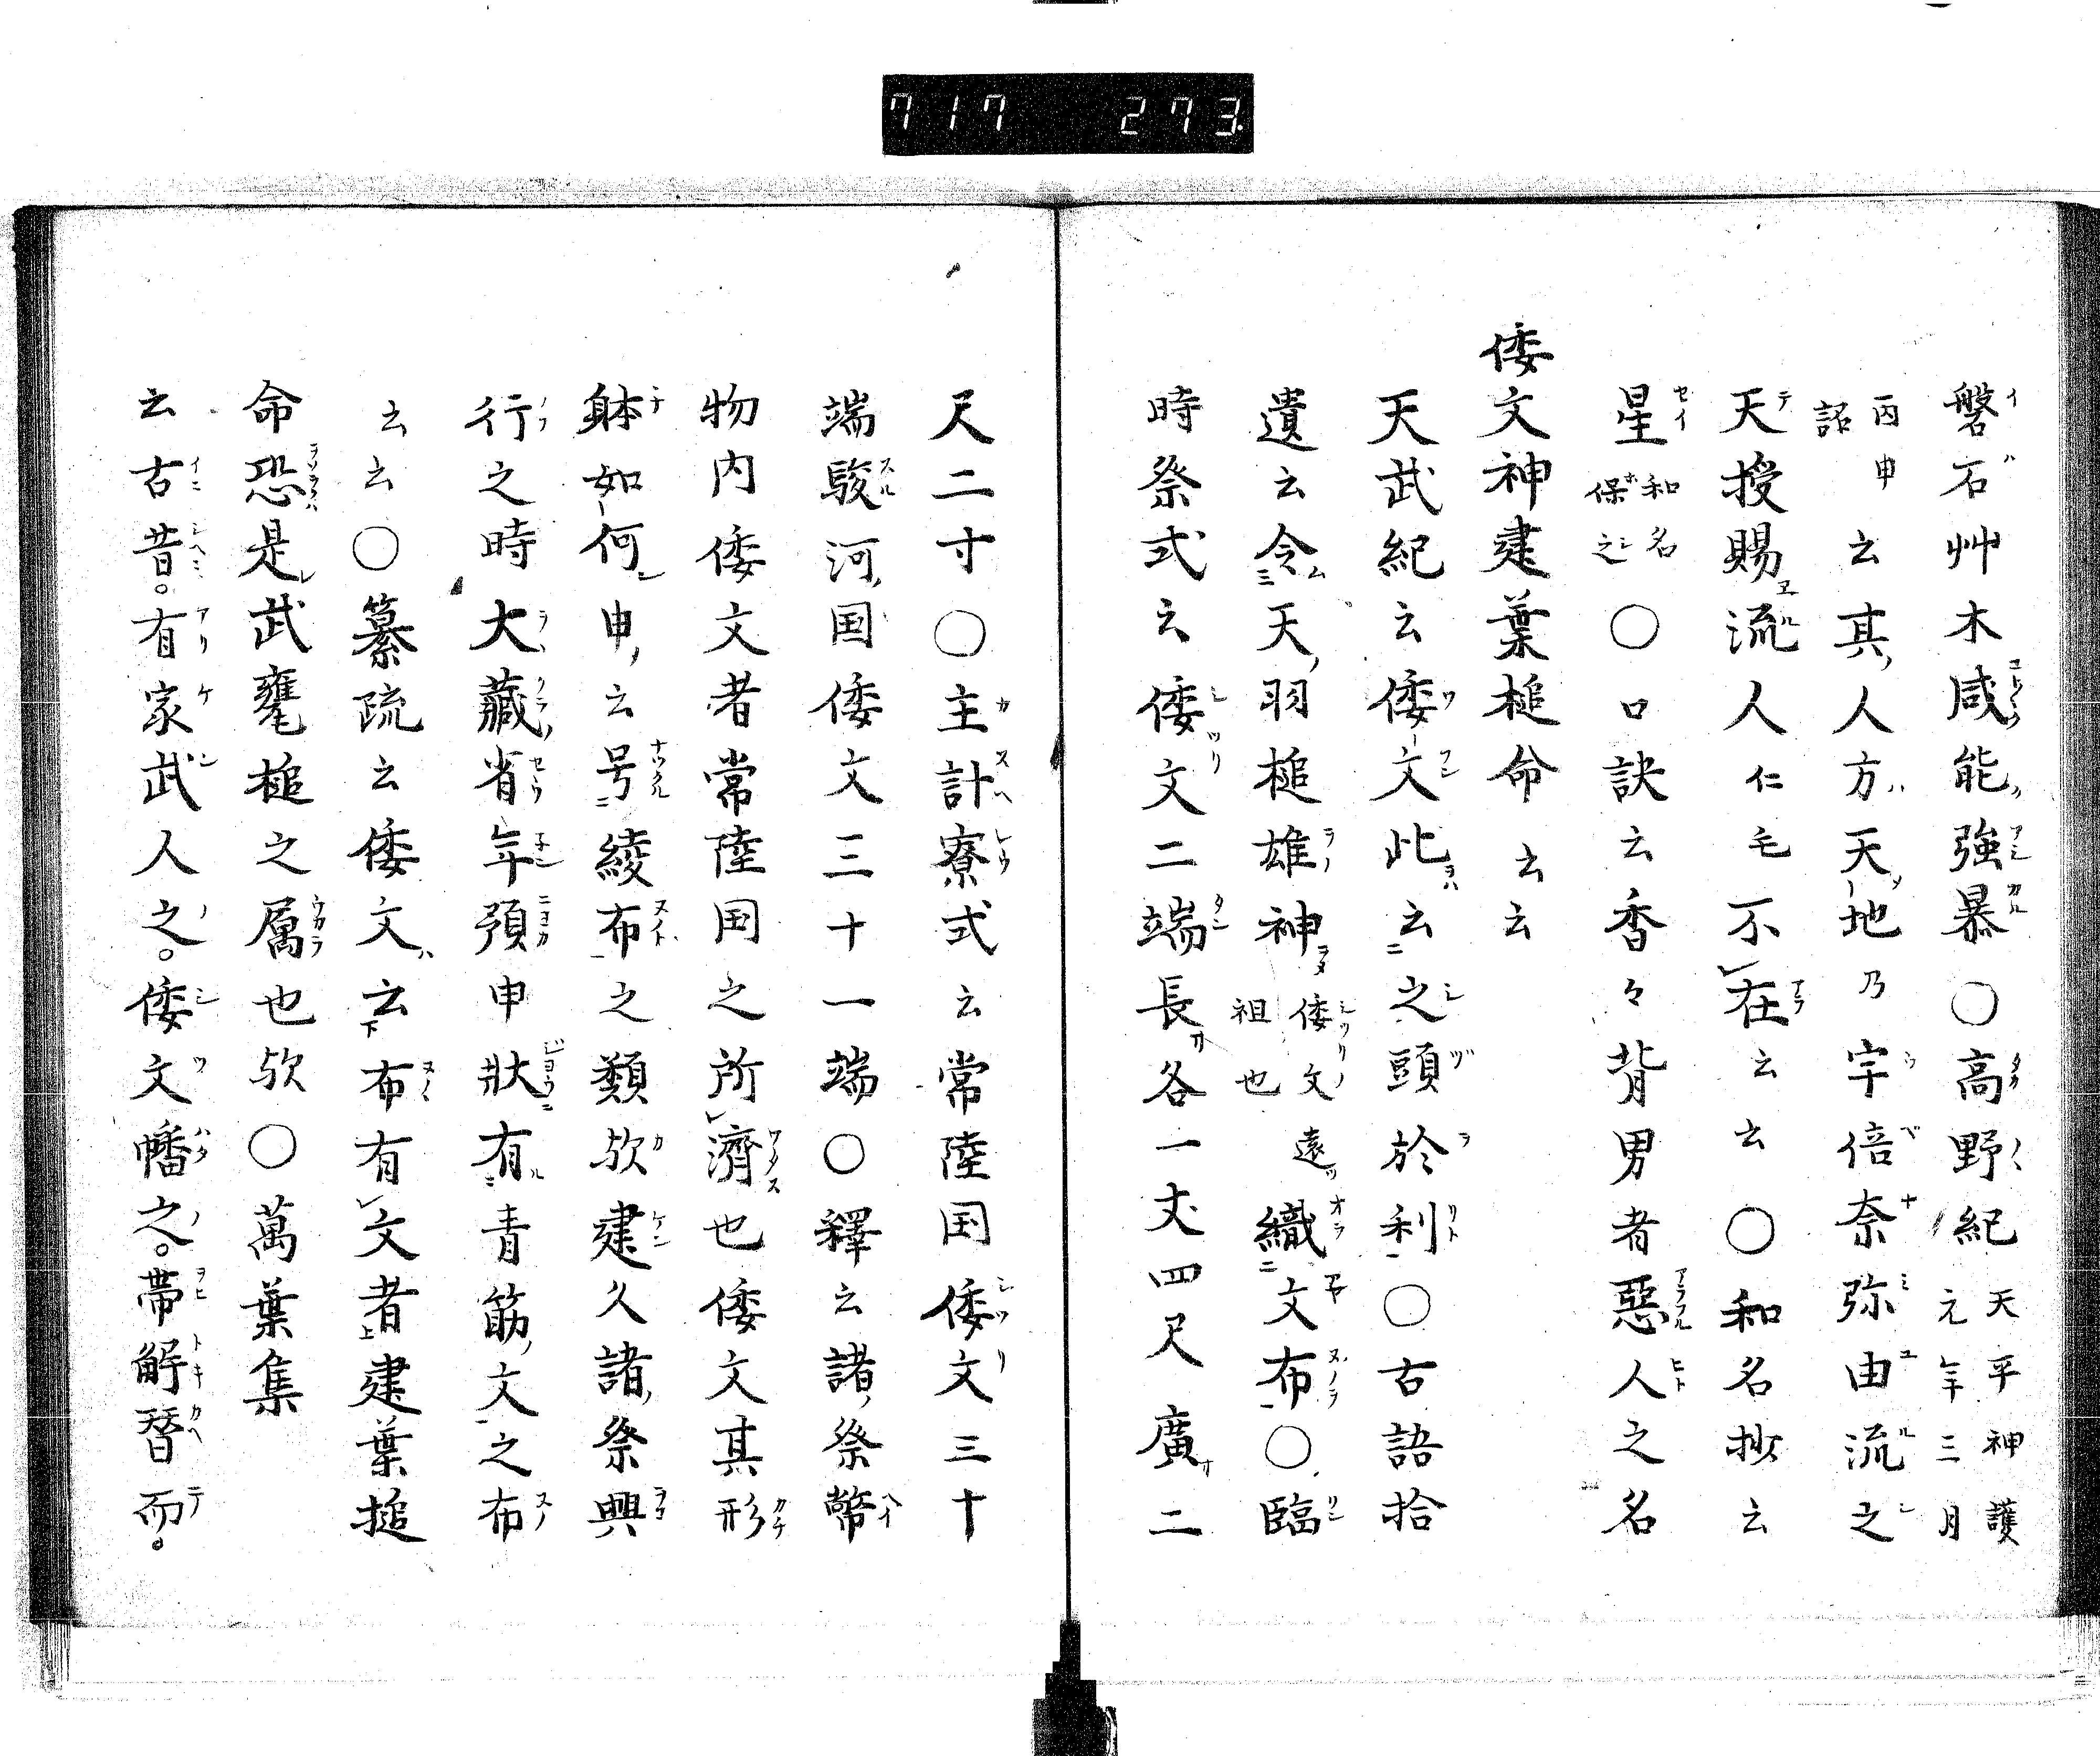 717 273
磐石艸木咸能強暴〇高野紀天平神護元年三月
丙申詔云其人方天地乃宇倍奈弥由流之
天授賜流人仁毛不在云云〇和名抄云
星和名保之〇口訣云香々背男者惡人之名
倭文神建葉槌命云云
天武紀云倭文此云之頭於利〇古語拾
遺云令天羽槌雄神倭文遠祖也織文布〇臨
時祭式云倭文二端長各一丈四尺廣二
尺二寸〇主計寮式云常陸国倭文三十
端駿河国倭文三十一端〇釋云諸祭幣
物内倭文者常陸国之所濟也倭文其形
躰如何申云号綾布之類欤建久諸祭興
行之時大藏省年預申狀有青筋文之布
云云〇纂疏云倭文玄布有文者建葉槌
命恐是武甕槌之属也欤〇萬葉集
云古昔。有家武人之。倭文幡之。帶解替而。